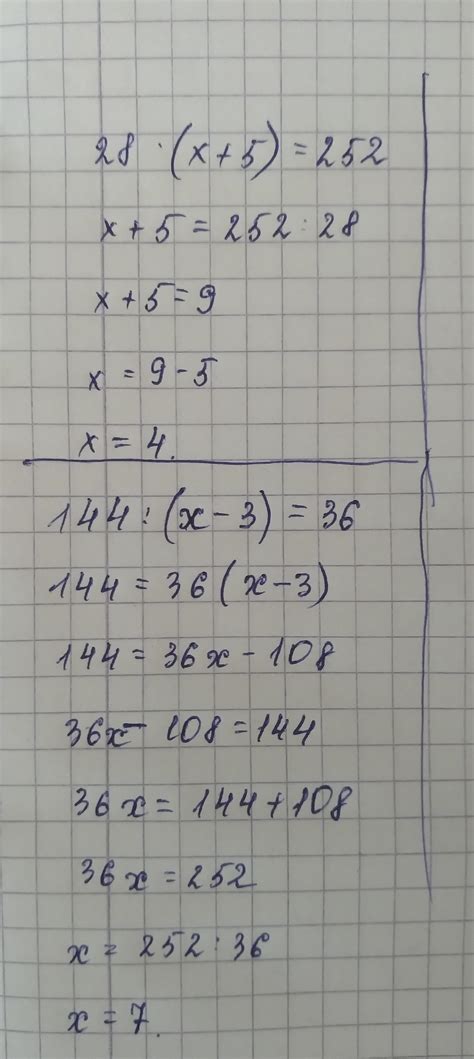 28 · (x + 5) = 252
x + 5 = 252 : 28
x + 5 = 9
x = 9 - 5
x = 4.
144 : (x - 3) = 36
144 = 36 (x - 3)
144 = 36x - 108
36x - 108 = 144
36x = 144 + 108
36x = 252
x = 252 : 36
x = 7.